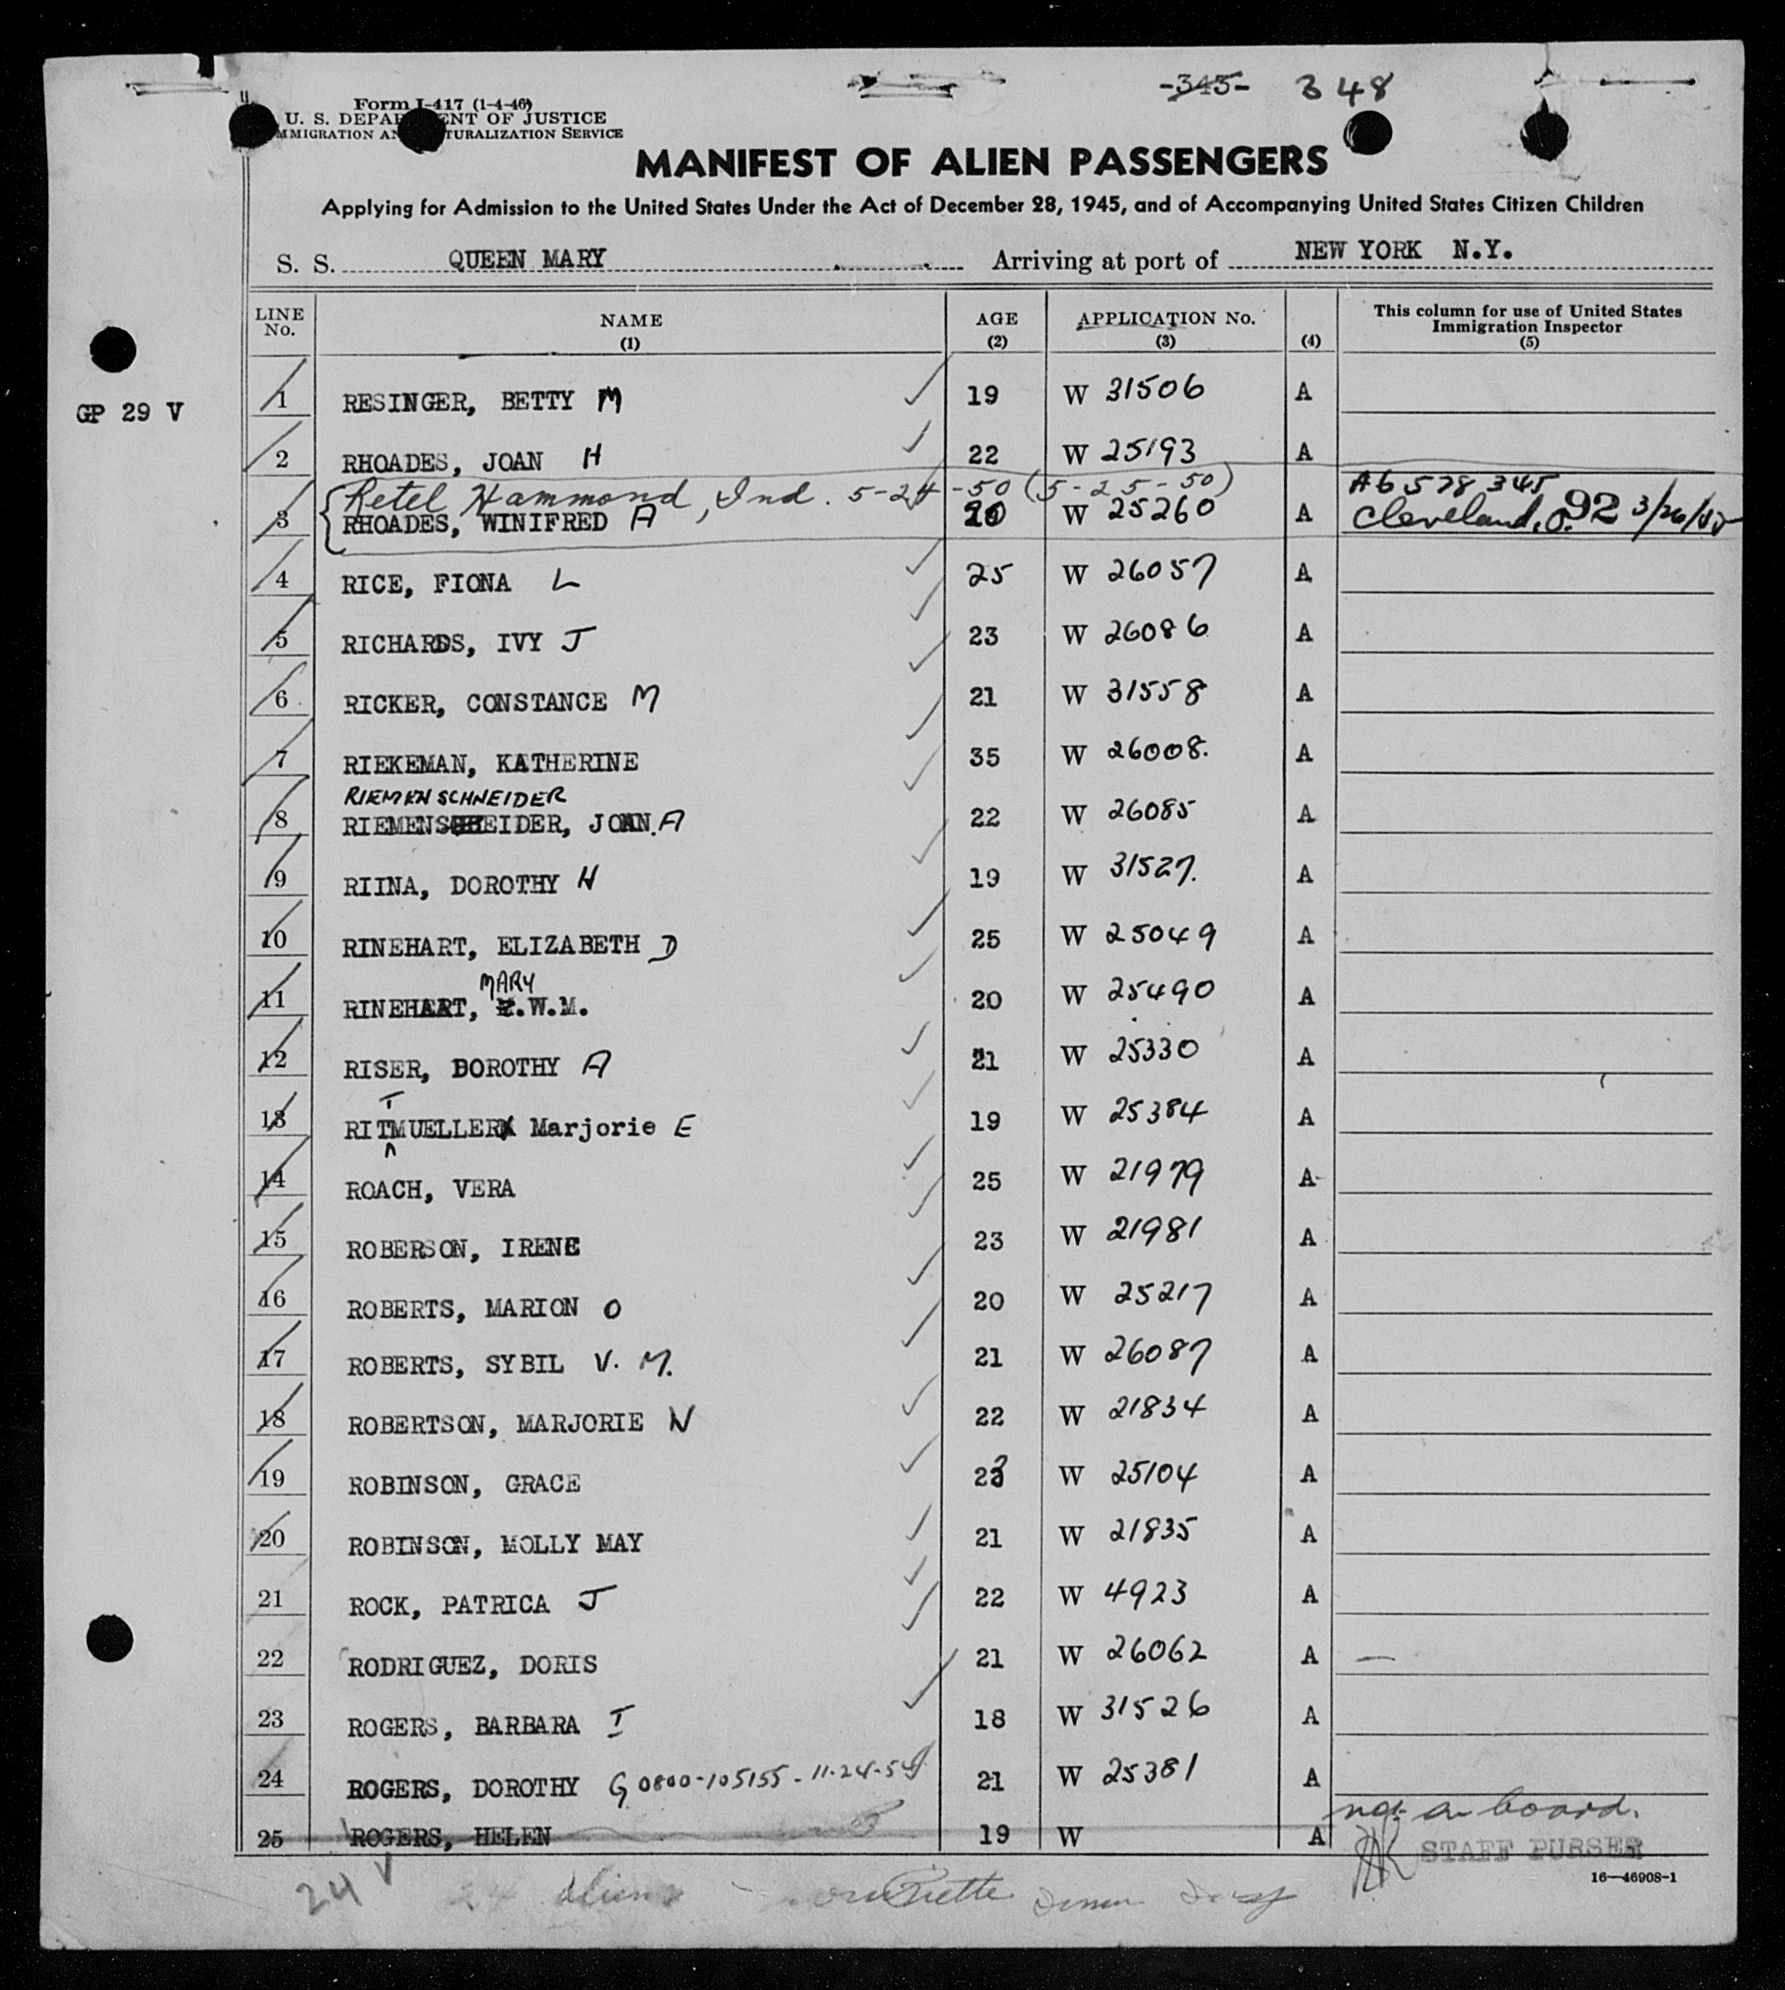 -345- 348
Form I-417 (1-4-46)
U. S. DEPARTMENT OF JUSTICE
IMMIGRATION AND NATURALIZATION SERVICE
MANIFEST OF ALIEN PASSENGERS
Applying for Admission to the United States Under the Act of December 28, 1945, and of Accompanying United States Citizen Children
S. S. QUEEN MARY Arriving at port of NEW YORK N.Y.
LINE No. NAME (1) AGE (2) APPLICATION No. (3) (4) This column for use of United States Immigration Inspector (5)
GP 29 V
1 RESINGER, BETTY M 19 W 31506 A
2 RHOADES, JOAN H 22 W 25193 A
Retel Hammond, Ind. 5-24-50 (5-25-50) A6 578 345
3 RHOADES, WINIFRED A W 25260 A Cleveland, O. 92
4 RICE, FIONA L 25 W 26057 A
5 RICHARDS, IVY J 23 W 26086 A
6 RICKER, CONSTANCE M 21 W 31558 A
7 RIEKEMAN, KATHERINE 35 W 26008. A
RIEMENSCHNEIDER
8 RIEMENS EIDER, JOAN. A 22 W 26085 A
9 RIINA, DOROTHY H 19 W 31527. A
10 RINEHART, ELIZABETH D 25 W 25049 A
MARY
11 RINEHART, .W.M. 20 W 25490 A
12 RISER, DOROTHY A 21 W 25330 A
T
13 RITMUELLER Marjorie E 19 W 25384 A
14 ROACH, VERA 25 W 21979 A
15 ROBERSON, IRENE 23 W 21981 A
16 ROBERTS, MARION O 20 W 25217 A
17 ROBERTS, SYBIL V. M. 21 W 26087 A
18 ROBERTSON, MARJORIE N 22 W 21834 A
19 ROBINSON, GRACE 23 W 25104 A
20 ROBINSON, MOLLY MAY 21 W 21835 A
21 ROCK, PATRICA J 22 W 4923 A
22 RODRIGUEZ, DORIS 21 W 26062 A —
23 ROGERS, BARBARA I 18 W 31526 A
24 ROGERS, DOROTHY G 0800-105155-11-24-54 21 W 25381 A
not on board.
25 ROGERS, HELEN 19 W A
STAFF PURSER
16—46908-1
24 V 24 Aliens